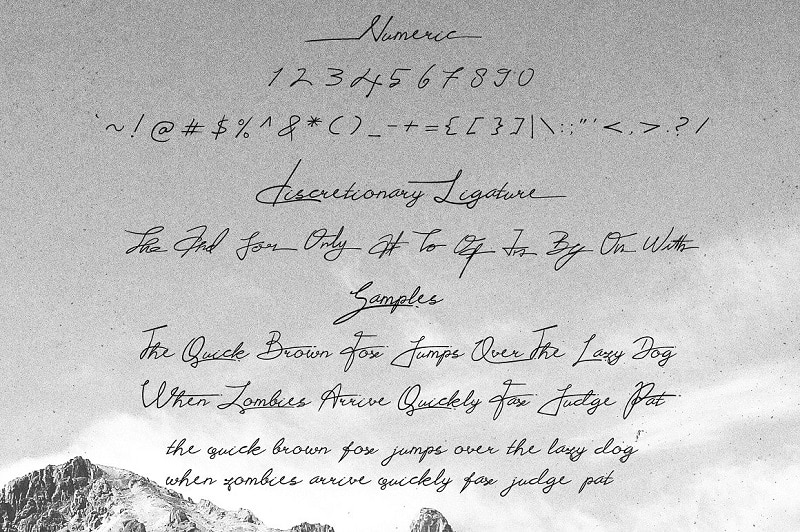 Numeric
1 2 3 4 5 6 7 8 9 0
` ~ ! @ # $ % ^ & * ( ) _ - + = { [ } ] | \ : ; " ' < , > . ? /
Discretionary Ligature
The And For Only At To Of In By On With
Samples
The Quick Brown Fox Jumps Over The Lazy Dog
When Zombies Arrive Quickly Fax Judge Pat
the quick brown fox jumps over the lazy dog
when zombies arrive quickly fax judge pat